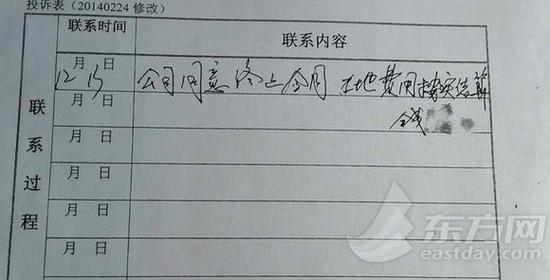 投诉表（20140224 修改）
联系时间 联系内容
月 日
12 15 公司同意终止合同 土地费用按实结算
月 日
金钱
月 日
月 日
月 日
月 日
联系过程
东方网
eastday.com